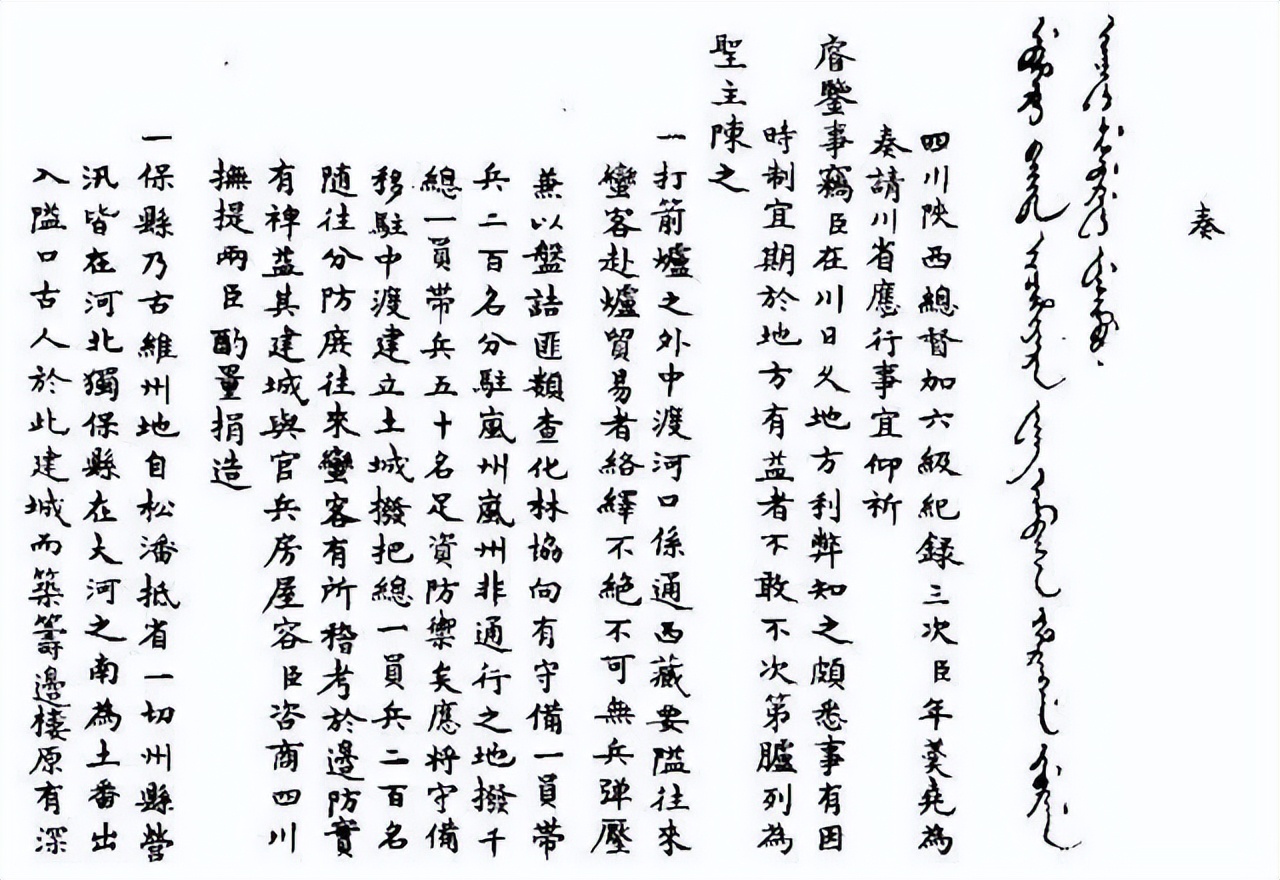 奏
四川陝西總督加六級紀錄三次臣年羹堯為
奏請川省應行事宜仰祈
睿鑒事竊臣在川日久地方利弊知之頗悉事有因
時制宜期於地方有益者不敢不次第臚列為
聖主陳之
一打箭爐之外中渡河口係通西藏要隘往來
蠻客赴爐貿易者絡繹不絕不可無兵彈壓
兼以盤詰匪類查化林協向有守備一員帶
兵二百名分駐嵐州嵐州非通行之地撥千
總一員帶兵五十名足資防禦矣應將守備
移駐中渡建立土城撥把總一員兵二百名
隨往分防庶往來蠻客有所稽考於邊防實
有裨益其建城與官兵房屋容臣咨商四川
撫提兩臣酌量捐造
一保縣乃古維州地自松潘抵省一切州縣營
汛皆在河北獨保縣在大河之南為土番出
入隘口古人於此建城而築籌邊棲原有深